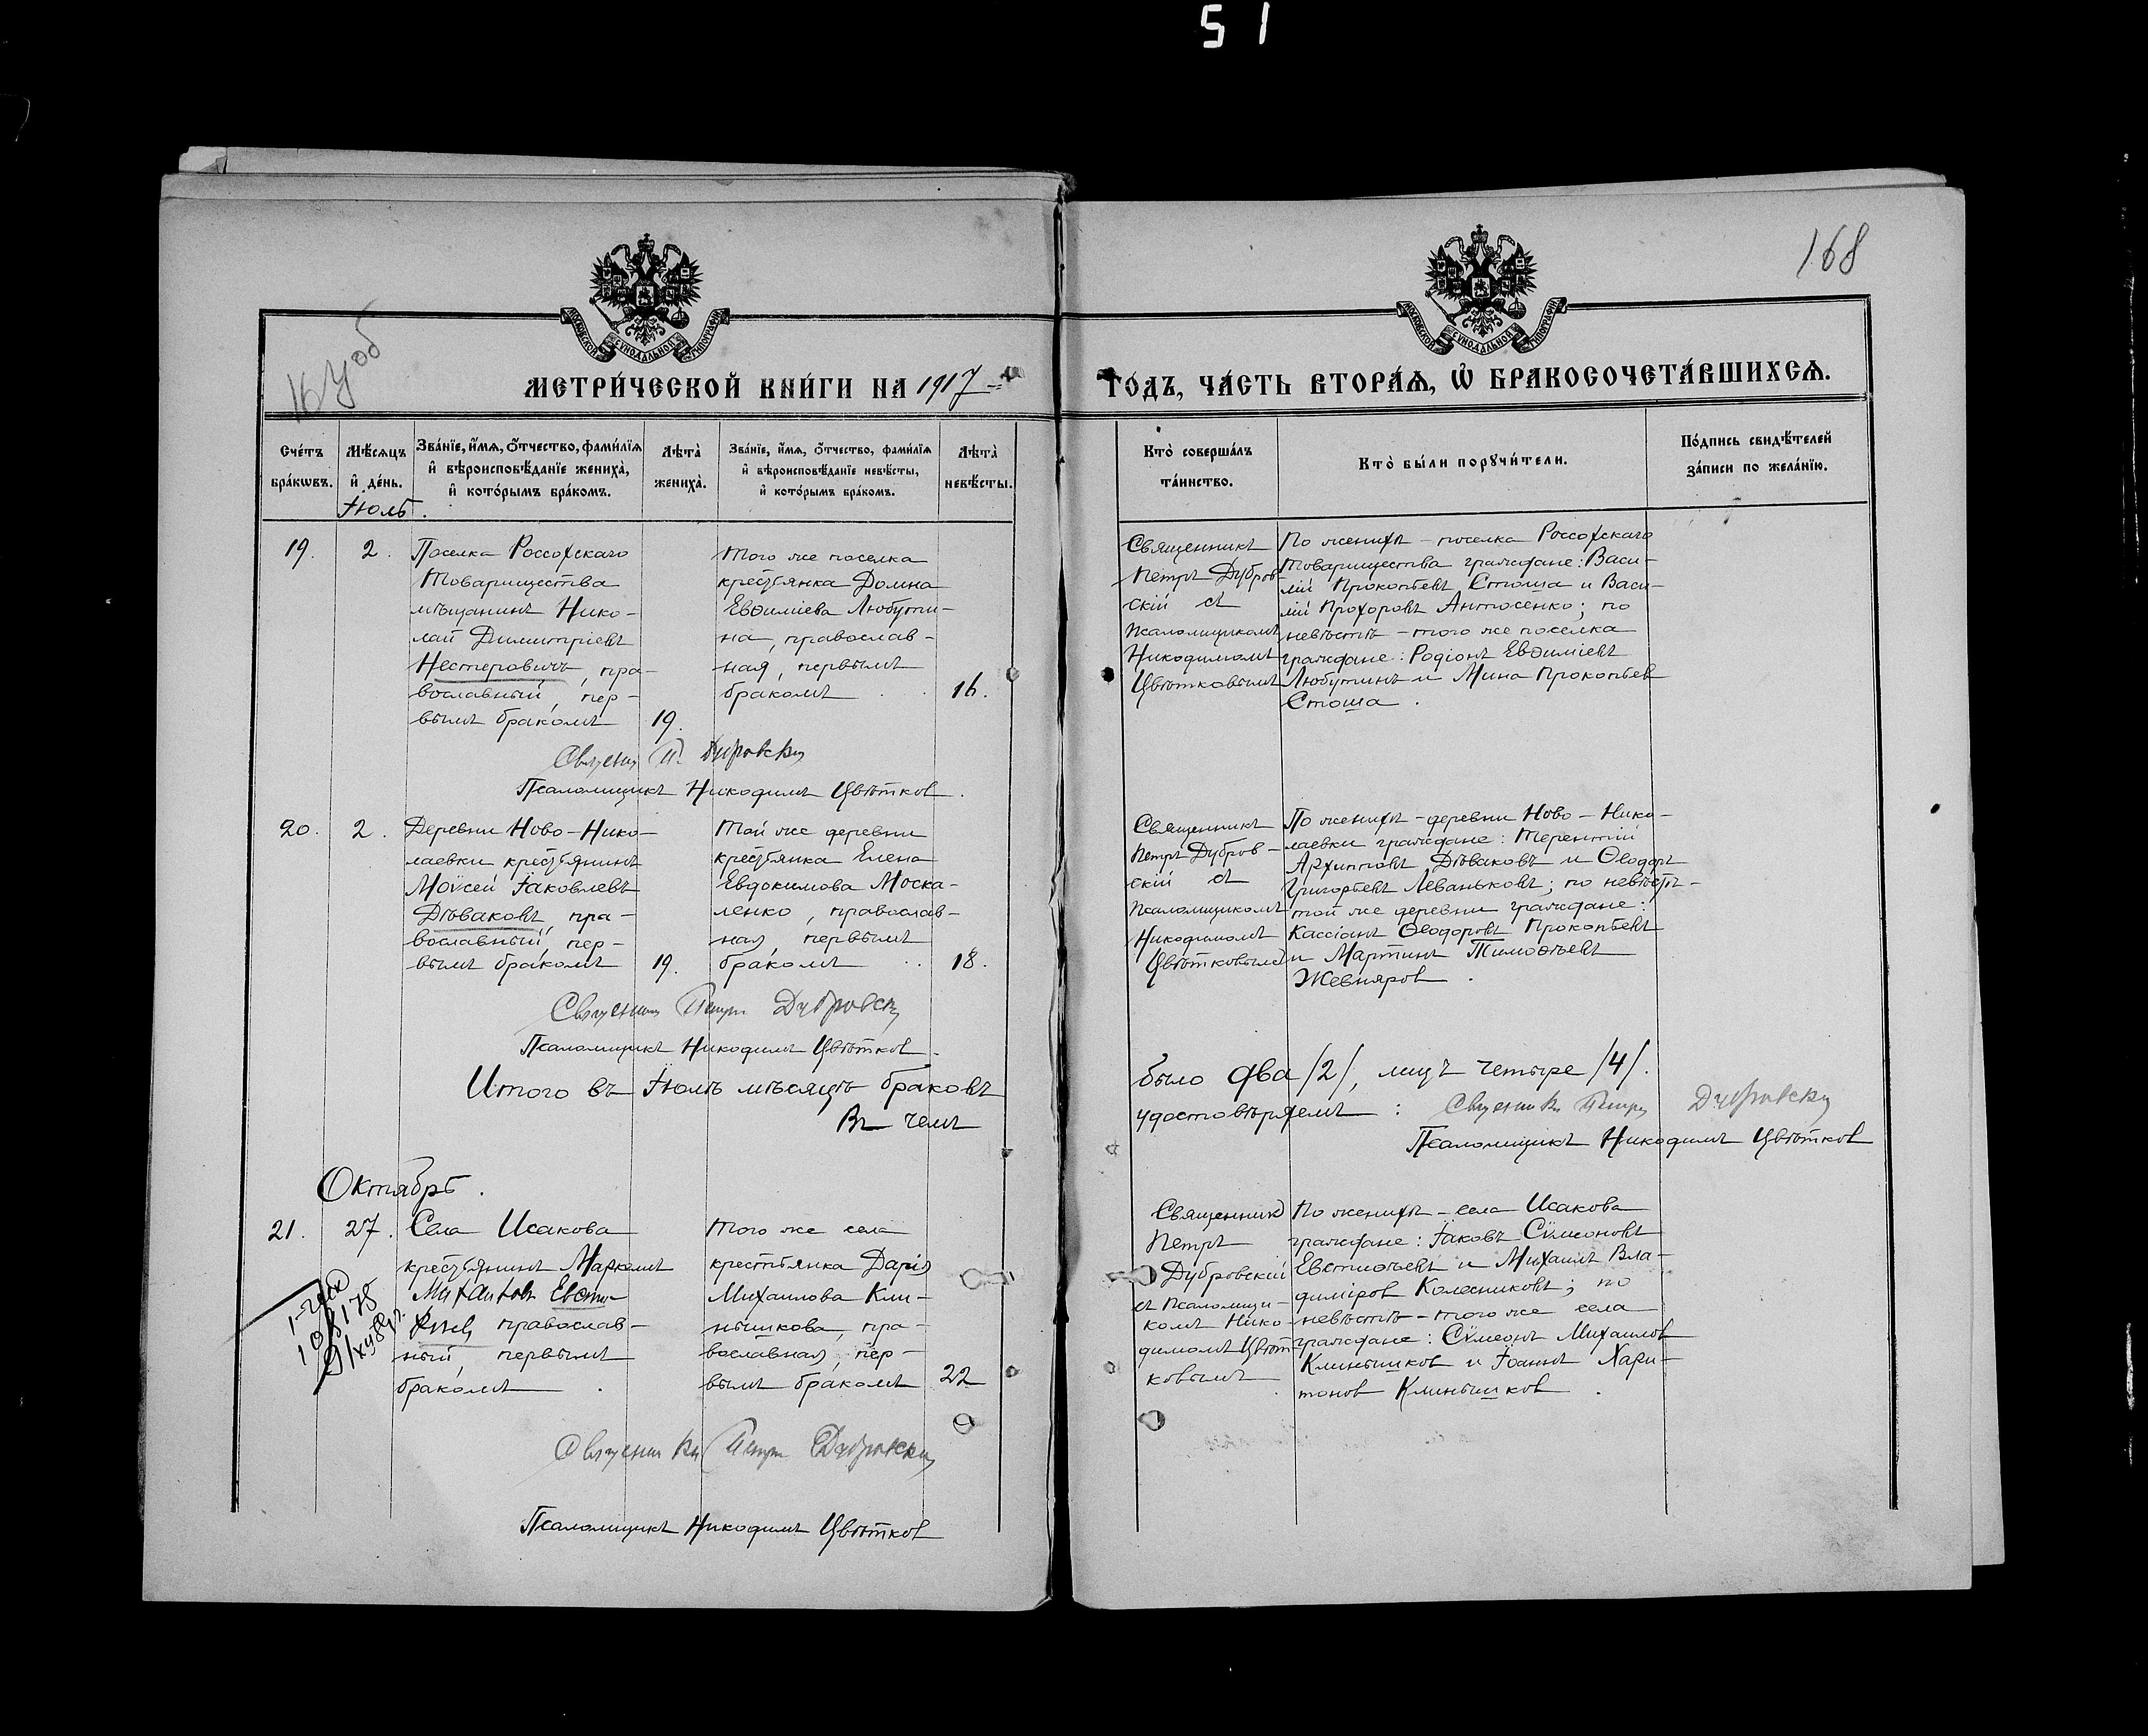 51
168
16 уоб
МОСКОВСКОЙ СѴНОДАЛЬНОЙ ТИПОГРАФІИ
МОСКОВСКОЙ СѴНОДАЛЬНОЙ ТИПОГРАФІИ
МЕТРИ́ЧЕСКОЙ КНИ́ГИ НА 1917
ГО́ДЪ, ЧА́СТЬ ВТОРА́Ѧ, Ѽ БРАКОСОЧЕТА́ВШИХСѦ.
Сче́тъ бра́кѡвъ.
Мѣ́сѧцъ и҆ де́нь.
Зва́нїе, и҆́мѧ, ѻ҆́тчество, фами́лїѧ и҆ вѣроисповѣ́данїе жениха̀, и҆ кото́рымъ бра́комъ.
Лѣ́та̀ жениха̀.
Зва́нїе, и҆́мѧ, ѻ҆́тчество, фами́лїѧ и҆ вѣроисповѣ́данїе невѣ́сты, и҆ кото́рымъ бра́комъ.
Лѣ́та̀ невѣ́сты.
Кто̀ соверша́лъ та́инство.
Кто̀ бы́ли порꙋчи́тели.
По́дпись свидѣ́телей за́писи по жела́нїю.
Іюль.
19.
2.
Поселка Россохскаго
Товарищества
мѣщанинъ Нико-
лай Димитріевъ
Нестеровичъ, пра-
вославный, пер-
вымъ бракомъ
19.
того же поселка
крестьянка Домна
Евѳиміева Любути-
на, православ-
ная, первымъ
бракомъ
16.
Священникъ
Петръ Дубров-
скій съ
псаломщикомъ
Никодимомъ
Цвѣтковымъ
По женихѣ – поселка Россохскаго
товарищества граждане: Васи-
лій Прокопьевъ Стоша и Васи-
лій Прохоровъ Антосенко; по
невѣстѣ – того же поселка
граждане: Родіонъ Евѳиміевъ
Любутинъ и Мина Прокопьев
Стоша.
Священ П. Дубровскій
Псаломщикъ Никодимъ Цвѣтков.
20.
2.
Деревни Ново-Нико-
лаевки крестьянинъ
Моѵсей Іаковлевъ
Дѣваковъ, пра-
вославный, пер-
вымъ бракомъ
19.
той же деревни
крестьянка Елена
Евдокимова Моска-
ленко, православ-
ная, первымъ
бракомъ
18.
Священникъ
Петръ Дубров-
скій съ
псаломщикомъ
Никодимомъ
Цвѣтковымъ
По женихѣ – деревни Ново-Нико-
лаевки граждане: Терентій
Архиповъ Дѣваковъ и Ѳеодоръ
Григорьевъ Леваньковъ; по невѣстѣ –
той же деревни граждане:
Кассіанъ Ѳеодоровъ Прокопьевъ
и Мартинъ Тимоѳеевъ
Жевняров.
Священник Петръ Дубровскій
Псаломщикъ Никодимъ Цвѣтков.
Итого въ Іюлѣ мѣсяцѣ браковъ
было два /2/, лицъ четыре /4/.
Въ чемъ
удостовѣряемъ:
Священникъ Петръ Дубровскій
Псаломщикъ Никодимъ Цвѣтков
Октябрь.
21.
27.
Села Исакова
крестьянинъ Маркелъ
Михаиловъ Евсти-
православ-
ный, первымъ
бракомъ.
Того же села
крестьянка Дарія
Михаилова Кли-
нышкова, пра-
вославная, пер-
вымъ бракомъ
22
Священник
Петръ
Дубровскій
съ псаломщи-
комъ Нико-
димомъ Цвѣт-
ковымъ
По женихѣ – села Исакова
граждане: Іаковъ Сѵмеоновъ
Евстиѳѣевъ и Михаилъ Вла-
диміров Колесниковъ; по
невѣстѣ – того же села
граждане: Сѵмеонъ Михаилов
Клинышков и Іоаннъ Хари-
тонов Клинышков.
Священникъ Петръ Дубровскій
Псаломщикъ Никодимъ Цвѣтков